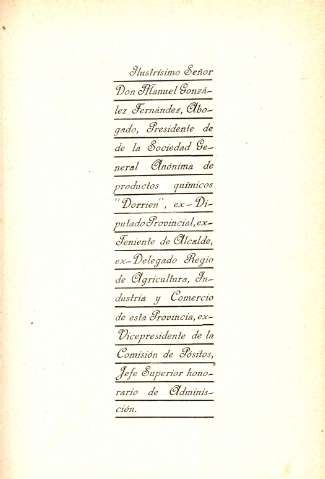 Ilustrísimo Señor
Don Manuel Gonzá-
lez Fernández, Abo-
gado, Presidente de
de la Sociedad Ge-
neral Anónima de
productos químicos
"Dorrien", ex-Di-
putado Provincial, ex-
Teniente de Alcalde,
ex-Delegado Regio
de Agricultura, In-
dustria y Comercio
de esta Provincia, ex-
Vicepresidente de la
Comisión de Pósitos,
Jefe Superior hono-
rario de Adminis-
ción.